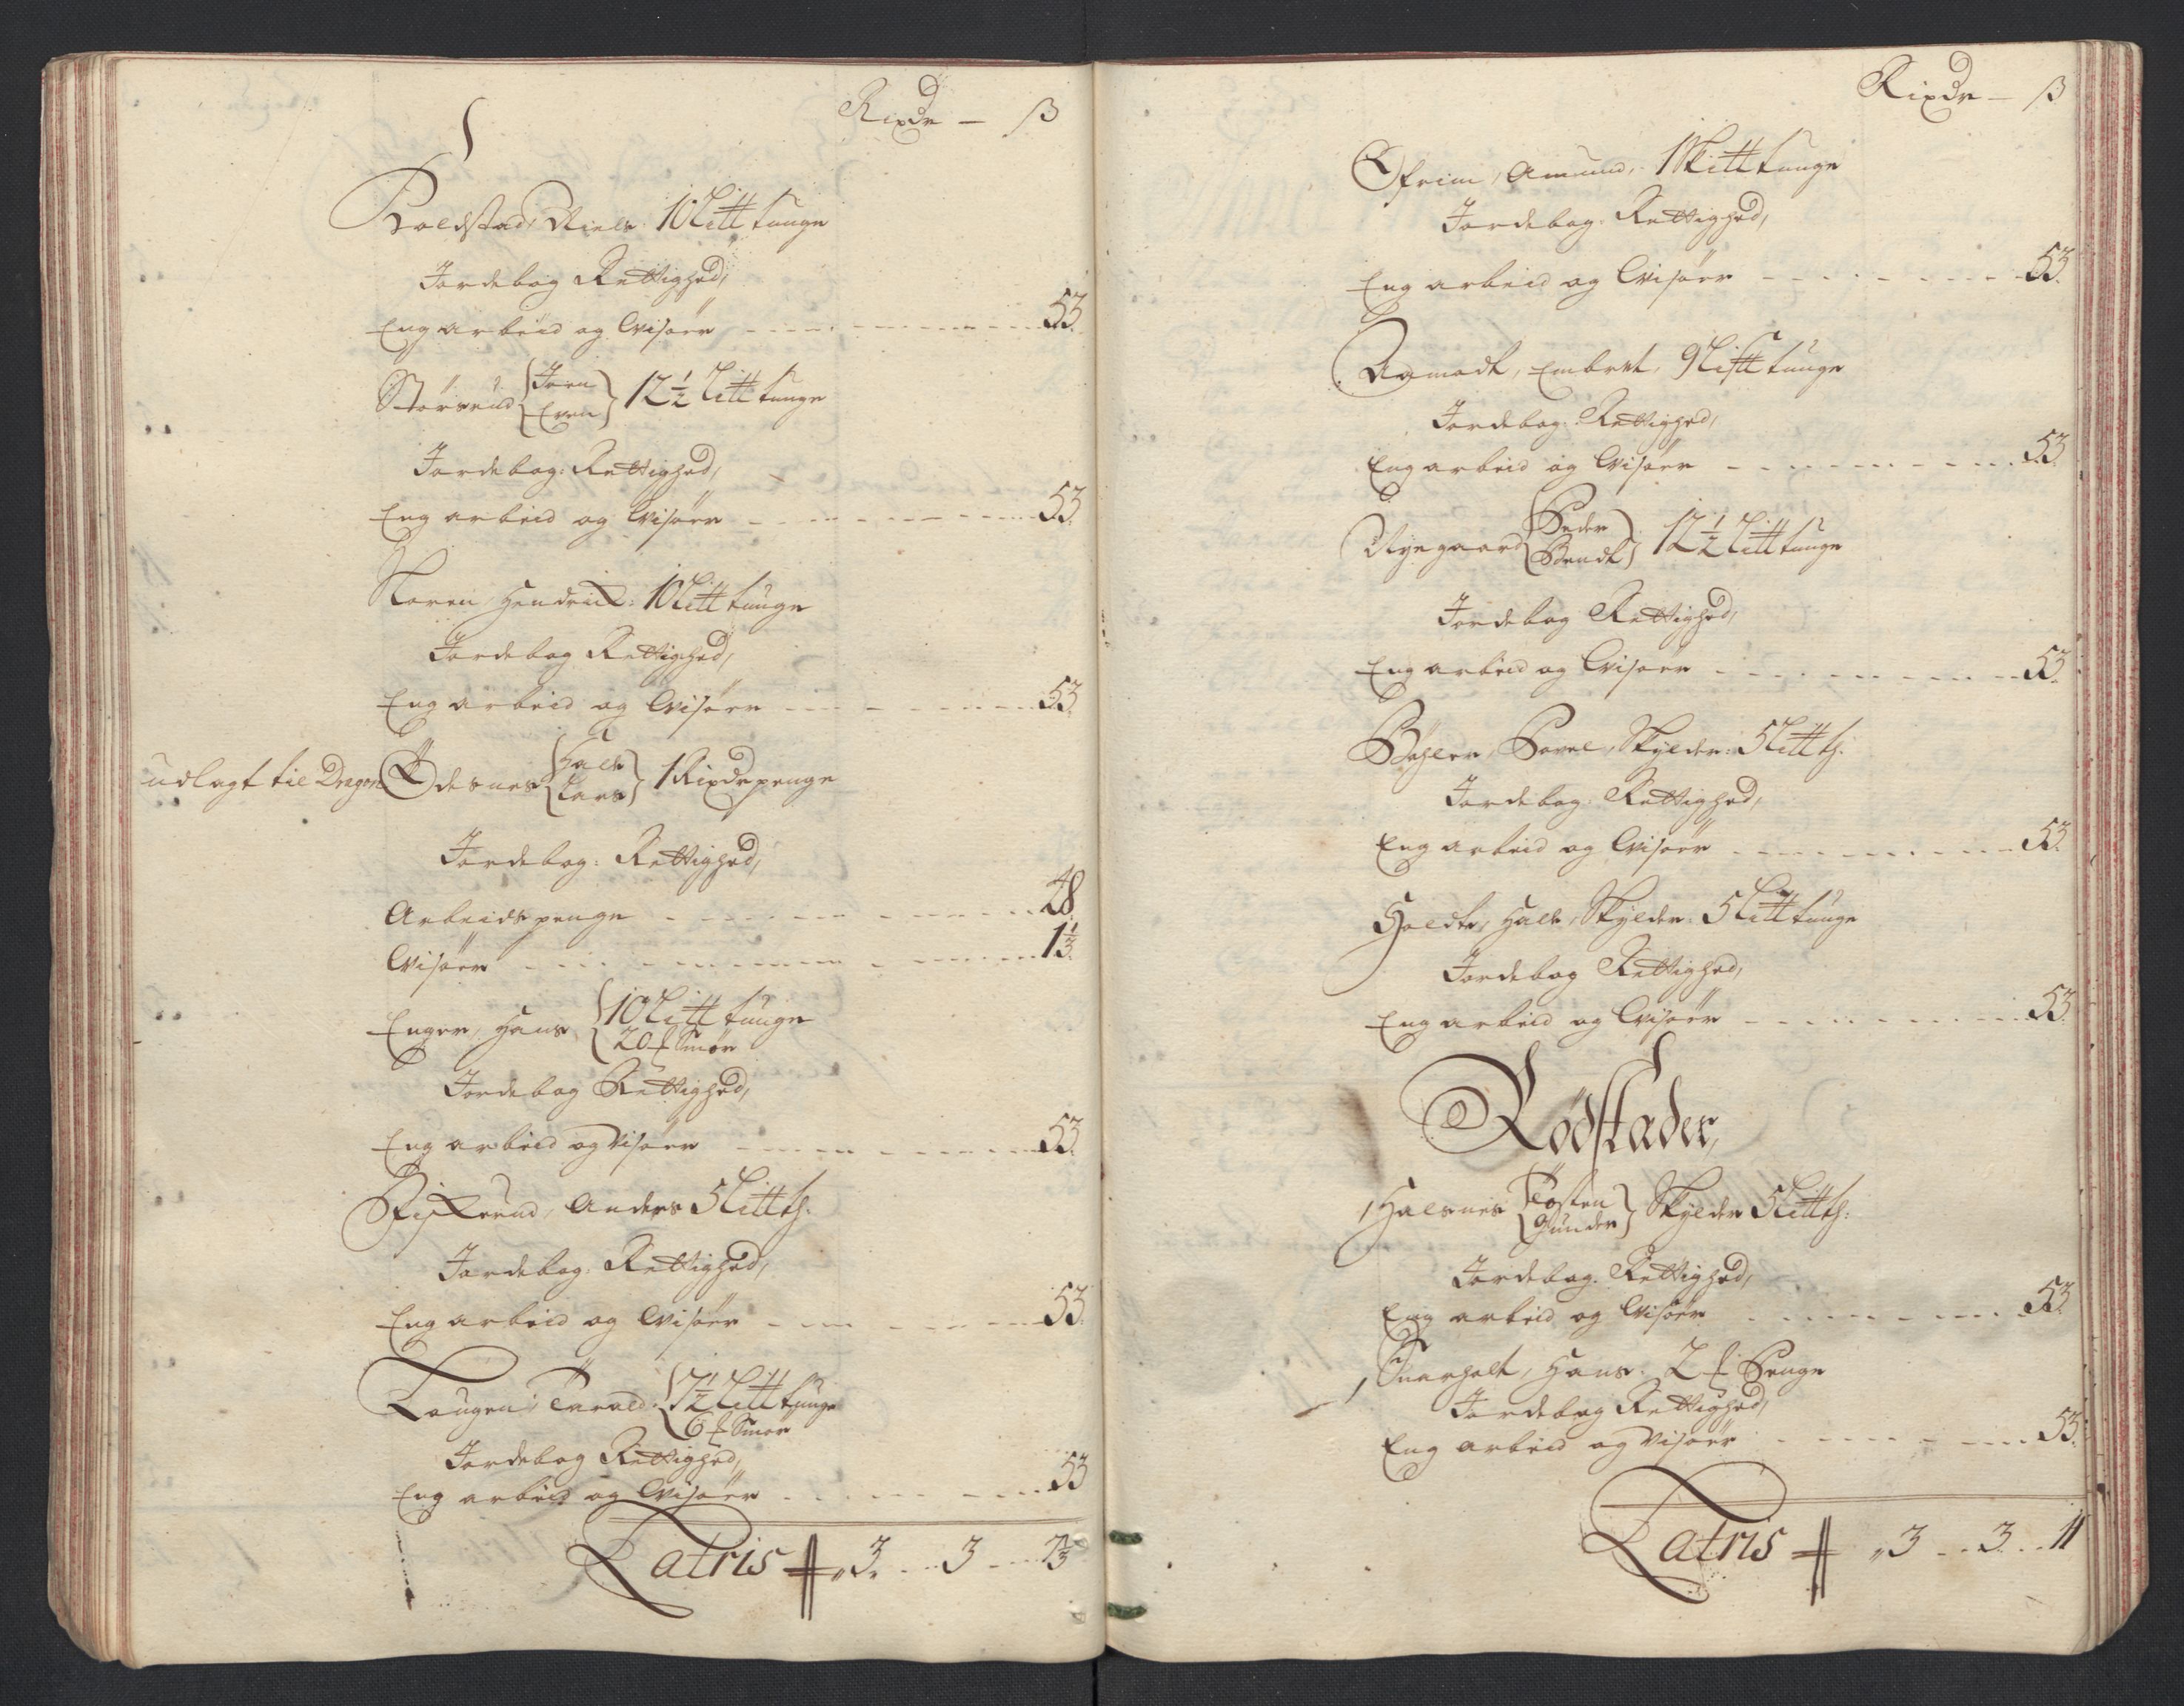 Rixdr — ß
Koldstad, Niels 10 Litt tunge
Jordebog Rettighed,
Eng arbeid og Wisøer - - - 53.
Størsrud {Joen Even} 12½ Litt tunge
Jordebog: Rettighed,
Eng arbeid og Wisøer - - - 53.
Noren Hendrich: 10 Litt tunge
Jordebog Rettighed,
Eng arbeid og Wisøer - - - 53.
udlagt til Dragon Ødesnes {Halv Lars} 1 Rixdrpenge
Jordebog: Rettighed,
Arbeidspenge - - - 48.
Wisøer - - - 1⅓.
Enger, Hans {10 Litt tunge 20 f Smør
Jordebog Rettighed,
Eng arbeid og Visøer - - - 53.
Anders 5 Litt th:
Jordebog: Rettighed,
Eng arbeid og Wisøer - - - 53.
Lougen, Tarald {7½ Litt tunge 6 f Smør
Jordebog Rettighed,
Eng arbeid og Wisøer - - - 53
Latris ⸗ 3 - - 3 - - 7⅓
Rixdr — ß
Amund, 1 Skitt tunge
Jordebog: Rettighed,
Eng arbeid og Wisøer - - - 53.
Aamodt, Embret, 9 Litt tunge
Jordebog: Rettighed,
Eng arbeid og Wisøer - - - 53.
Nyegaard {Peder Bendt} 12½ Litt tunge
Jordebog Rettighed,
Eng arbeid og Wisøer - - - 53.
Bøhler, Povel, Skylder: 5 Litt th:
Jordebog: Rettighed,
Eng arbeid og Wisøer - - - 53.
Holdte, Halv, Skylder: 5 Litt tunge
Jordebog Rettighed,
Eng arbeid og Wisøer - - - 53.
Rødstader,
Halsnes {Tosten Gunder} Skylder 5 Litt th:
Jordebog: Rettighed,
Eng arbeid og Wisøer - - - 53.
Snarholt, Hans: 2 f Penge
Jordebog Rettighed,
Eng arbeid og Visøer - - - 53.
Latris ⸗ 3 - - 3 - - 11